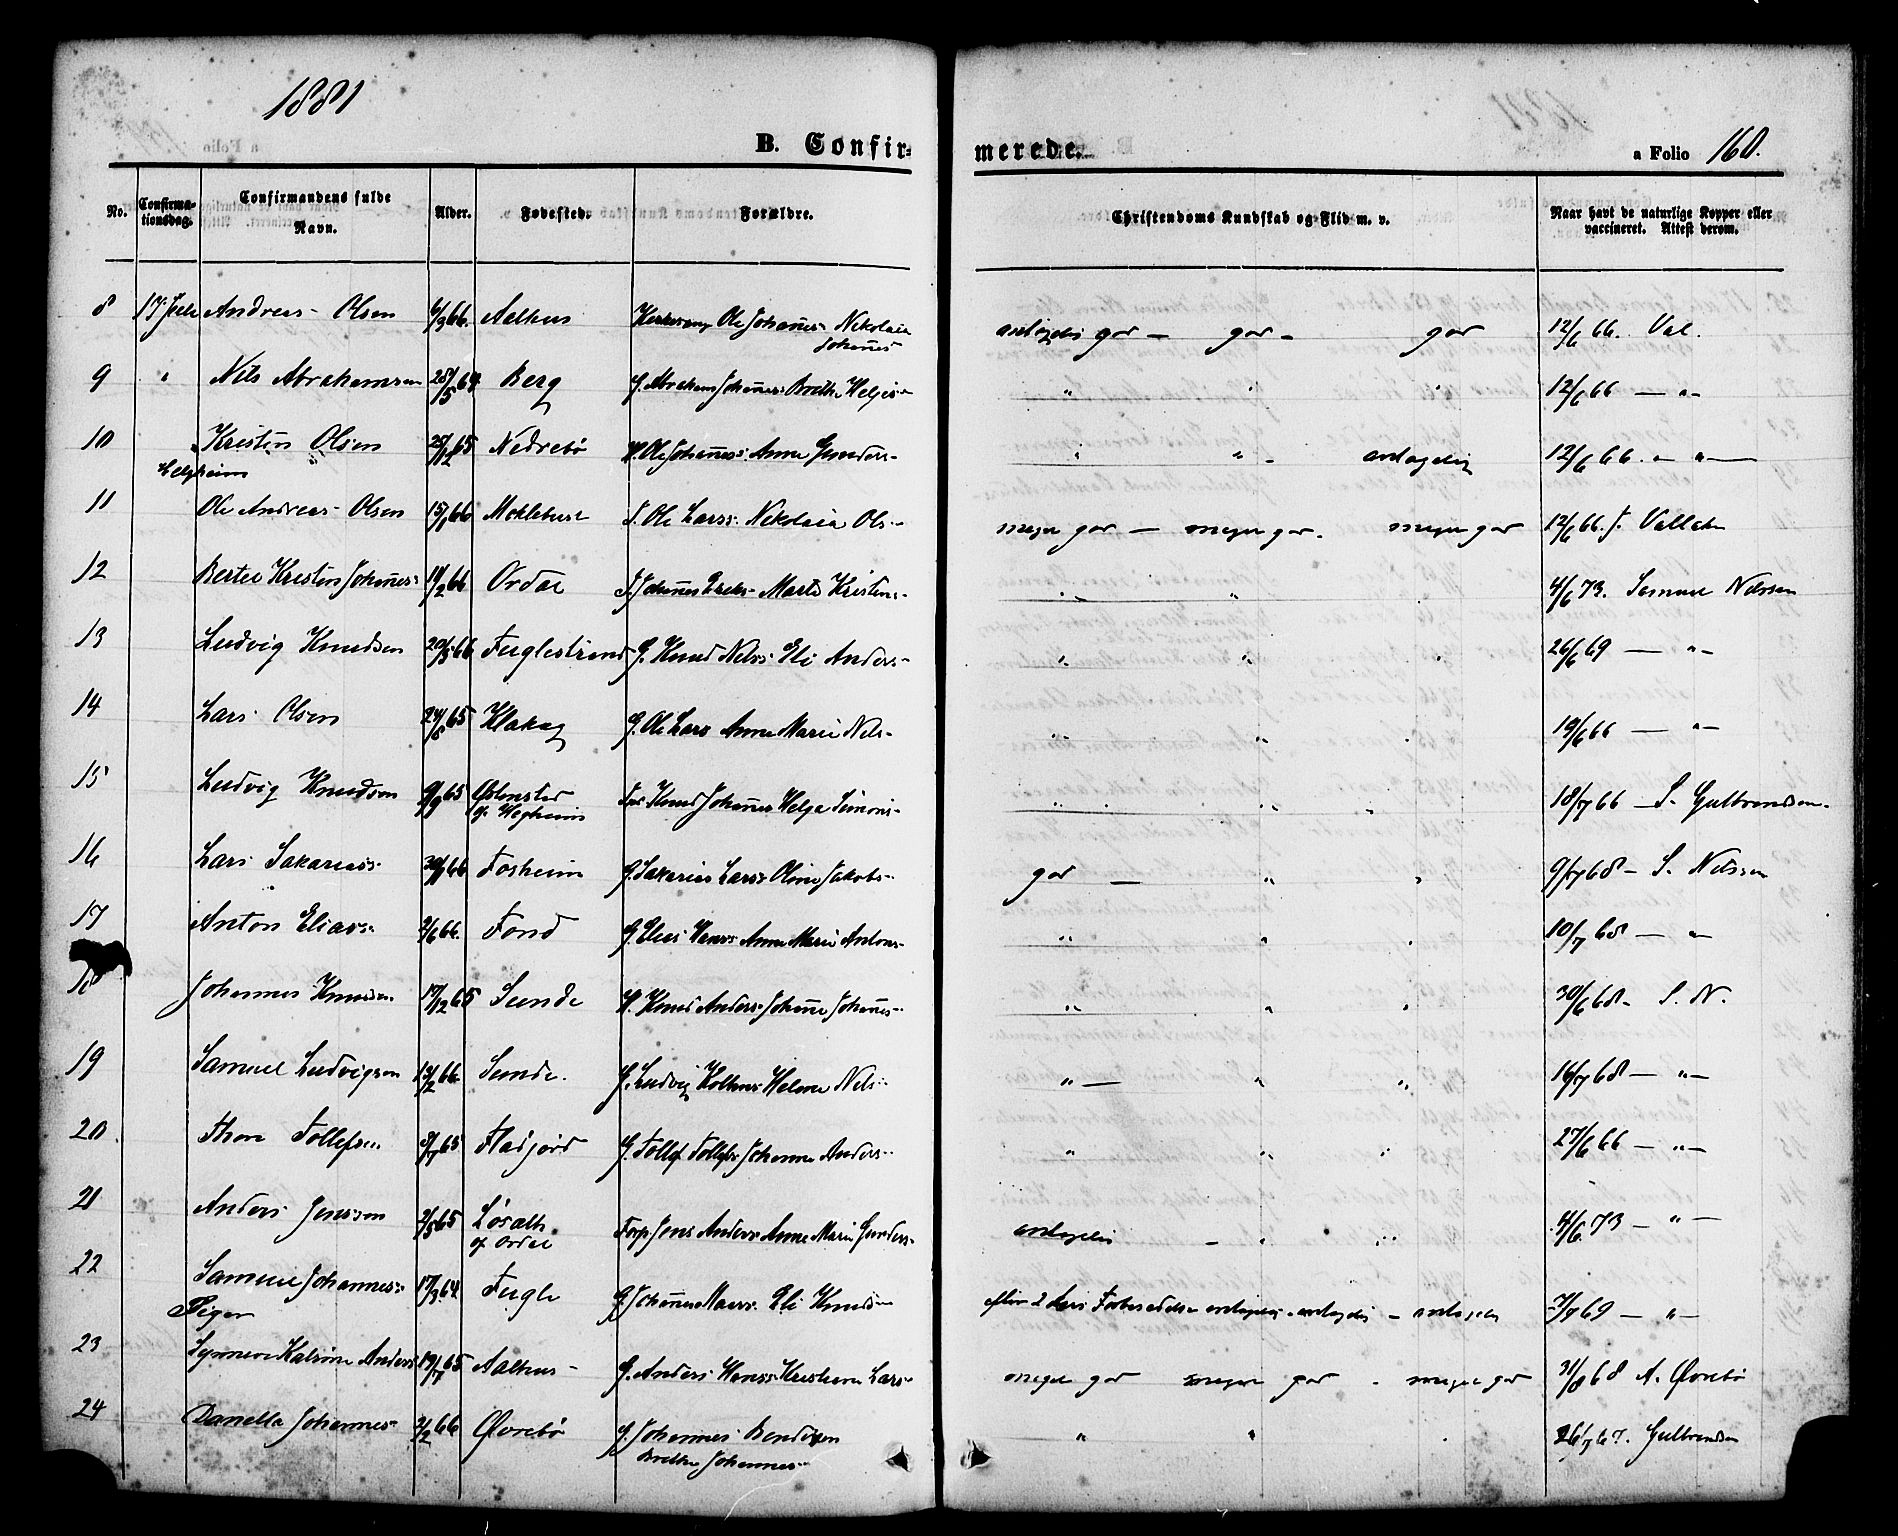 1881
B. Confir=
merede.
a Folio 160.
No. Confirma-tionsdag. Confirmandens fulde Navn. Alder. Fødested. Forældre. Christendoms Kundskab og Flid m. v. Naar havt de naturlige Kopper eller vaccineret. Attest derom.
8 17 Juli Andreas Olsen 66. Aalhus Ole Johannes Nikolaia Johannes god — god — god 12/6 66. Val.
9 " Nils Abrahamsen 28/5 64 Berg G. Abraham Johannes Brethe Helges " " " 12/6 66 — " —
10 Kristen Olsen 25/12 65 Nedrebø H. Ole Johannes Anna Gunders- " " - antagelig 12/6 66. — " —
Helgheim
11 Ole Andreas Olsen 15/1 66 Moklebust I. Ole Larss. Nikolaia Ols- meget god — meget god - meget god 12/6 66. J. Vallab
12 Berter Kristen Johannes- 14/2 66 Ordal I. Johannes Eriks- Marte Kristens- " " " 4/6 73. Samuel Nilssen
13 Ludvig Knudsen 20/5 66 Fuglestrand G. Knud Nels. Eli Anders- " " " 26/6 69 — " —
14 Lars Olsen 24/8 65 Klakeg G. Ole Lars Anne Marie Nels- " " " 19/6 66 — " —
15 Ludvig Knudsen 9/9 65 Østensted Knud Johannes Helga Simons- " " " 18/7 66 — S. Gulbrandsen.
Hegheim
16 Lars Sakarias- 66 Fosheim G. Sakarias Larss Oline Jakobs- god — " " 9/7 68 — S. Nilssen
17 Anton Elias- 2/6 66. Fond G. Elias Hans Anne Marie Antons- " " " 10/7 68 — " —
18 Johannes Knudsen 17/12 65 Sunde H. Knud Anders- Johanne Johannes- " " " 30/6 68 - S. N.
19 Samuel Ludvigsen 14/2 66. Sunde. G. Ludvig Helene Nels- " — " " 16/7 68 — " —
20. Thore Tollefsen 3/7 65 Fladjord G. Tollef Tollefs Johanne Anders- " " " 27/6 66 — " —
21 Anders Jenssen 2/5 65 Løsæth Jens Anders Anne Marie Gunders- antagelig — " " 4/6 73 — " —
af Ordal
22 Samuel Johannes- 17/3 64. Fugle G. Johannes Eli Knuds- efter 2 Forberedelse antagelig - antagelig — antagelig 7/7 69 — " —
Piger
23 Synneve Katrine Anders 19/7 65 Aalhus - G. Anders Hanss Kristiane Lars- meget god meget god - meget god 31/8 68 A. Øvrebø
24 Danella Johannes- 2/2 66 Øvrebø G. Johannes Bendixen " " " 26/7 67. Gulbrandsen
Brethe Johannes-